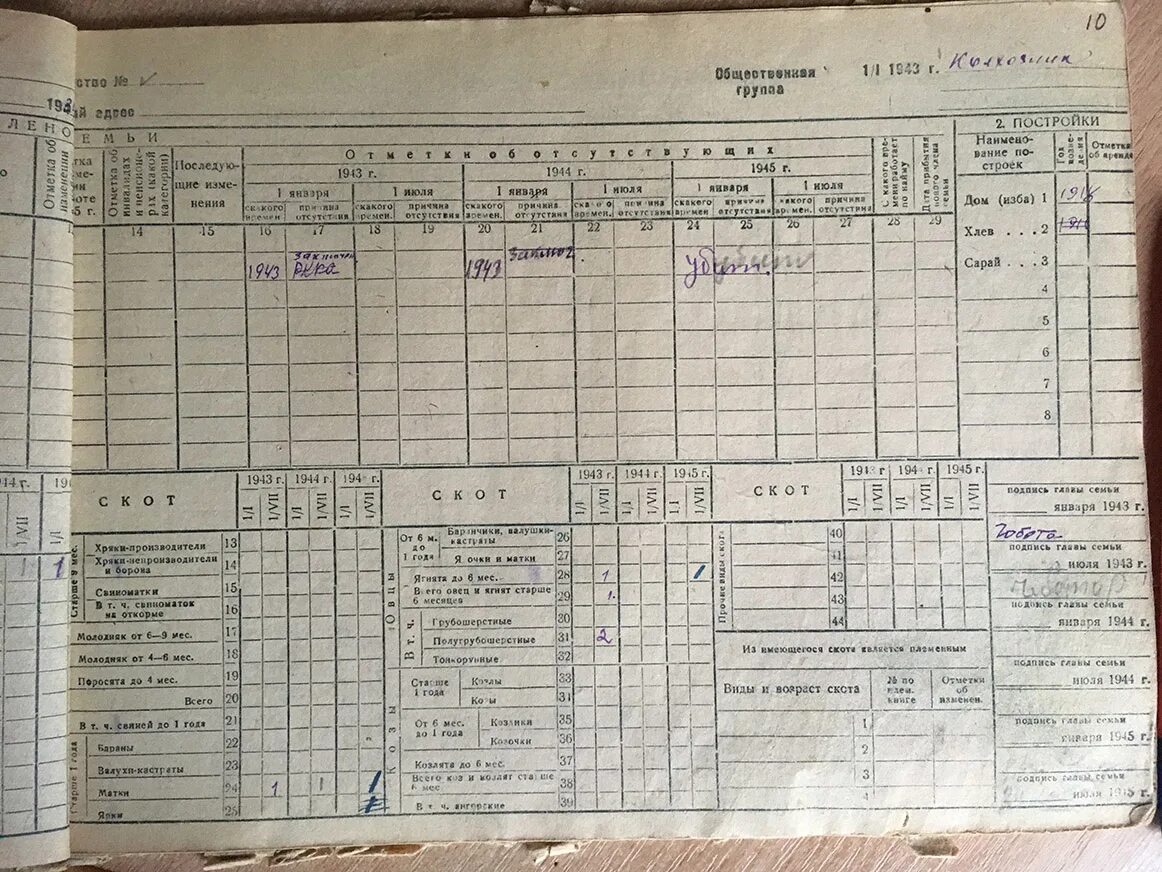 10
ство №
Общественная группа
1/I 1943 г. Колхозник
й адрес
ЛЕНО
ЕМЬИ
2. ПОСТРОЙКИ
Отметка об изменении
Отметка об инвалидах и пенсионерах (какой категории)
Последующие изменения
Отметки об отсутствующих
1943 г.
1944 г.
1945 г.
1 января
1 июля
1 января
1 июля
1 января
1 июля
с какого времен.
причина отсутствия
с какого времен.
причина отсутствия
с какого времен.
причина отсутствия
с какого времен.
причина отсутствия
с какого времен.
причина отсутствия
с какого времен.
причина отсутствия
С какого времени работает по найму
Дата прибытия нового члена семьи
Наименование построек
Год возведения
Отметка об аренде
14 15 16 17 18 19 20 21 22 23 24 25 26 27 28 29
1943 РККА
1943
убит
Дом (изба) 1 1918
Хлев . . . 2
Сарай . . . 3
4
5
6
7
8
СКОТ
1943 г. 1944 г. 194 г.
1/I 1/VII 1/I 1/VII 1/I 1/VII
Старше 9 мес.
Хряки-производители 13
Хряки-непроизводители и борова 14
Свиноматки 15
В т. ч. свиноматок на откорме 16
Молодняк от 6—9 мес. 17
Молодняк от 4—6 мес. 18
Поросята до 4 мес. 19
Всего 20
В т. ч. свиней до 1 года 21
Старше 1 года
Бараны 22
Валухи-кастраты 23
Матки 24 1 1 1
Ярки 25
СКОТ
1943 г. 1944 г. 1945 г.
1/I 1/VII 1/I 1/VII 1/I 1/VII
Овцы
От 6 м. до 1 года
Баранчики, валушки-кастраты 26
Ярочки и матки 27
Ягнята до 6 мес. 28 1 1
Всего овец и ягнят старше 6 месяцев 29 1
В т. ч.
Грубошерстные 30
Полугрубошерстные 31 2
Тонкорунные 32
Козы
Старше 1 года
Козлы 33
Козы 34
От 6 мес. до 1 года
Козлики 35
Козочки 36
Козлята до 6 мес. 37
Всего коз и козлят старше 6 мес. 38
В т. ч. ангорские 39
СКОТ
1943 г. 194 г. 1945 г.
1/I 1/VII 1/I 1/VII 1/I 1/VII
Прочие виды скота
40
41
42
43
44
Из имеющегося скота является племенным
Виды и возраст скота
№ по плем. книге
Отметки об изменен.
1
2
3
4
подпись главы семьи
января 1943 г.
подпись главы семьи
июля 1943 г.
подпись главы семьи
января 1944 г.
подпись главы семьи
июля 1944 г.
подпись главы семьи
января 1945 г.
подпись главы семьи
июля 1945 г.